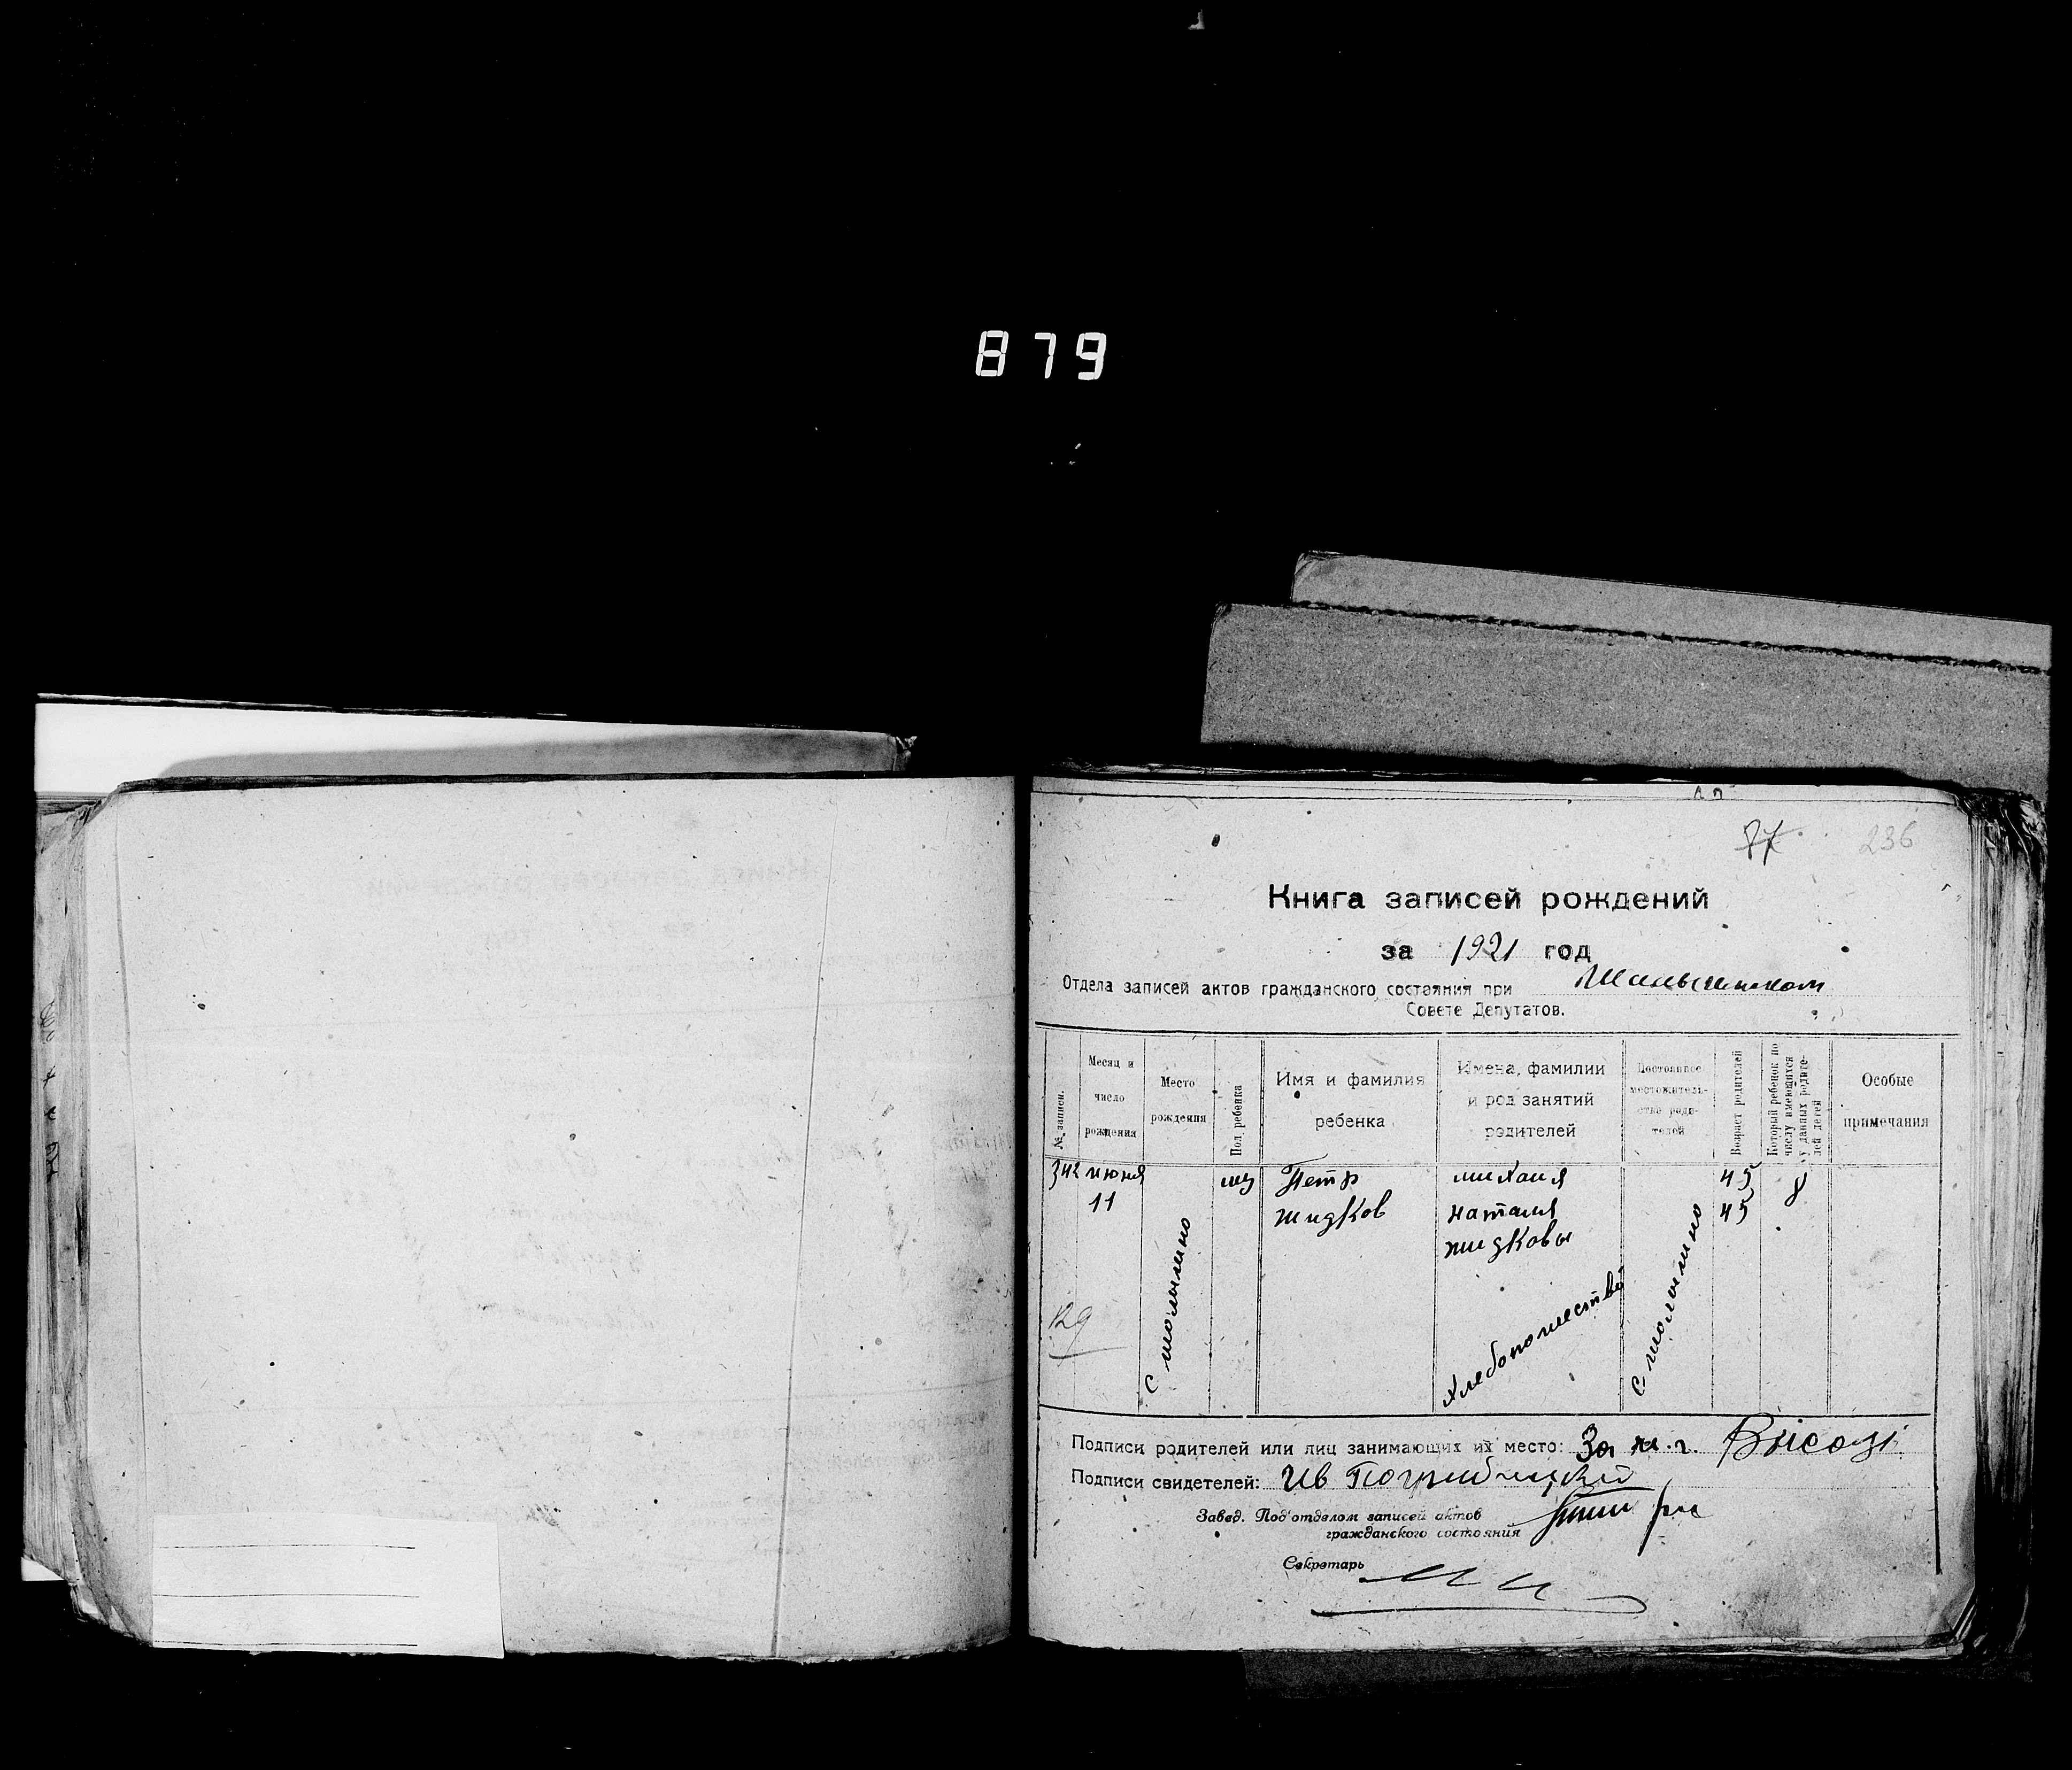 879
236
Книга записей рождений
за 1921 год
Отдела записей актов гражданского состояния при
Совете Депутатов.
№ записи.
Месяц и число рождения
Место рождения
Пол ребенка
Имя и фамилия ребенка
Имена, фамилии и род занятий родителей
Постоянное местожительство родителей
Возраст родителей
Который ребенок по числу имеющихся у данных родителей детей
Особые примечания
342 июня муж Петр михаил 45 8
11 жидков наталия 45
жидковы
хлебопашество
129
Подписи родителей или лиц занимающих их место: За н.г.
Подписи свидетелей: Ив
Завед. Под'отделом записей актов
гражданского состояния
Секретарь